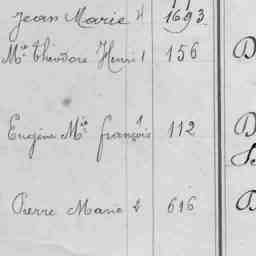 Jean Marie 4 1693
Mie théodore Henri 1 156 D
Eugène Mie françois 1 112 D
Pierre Marie 4 616 D